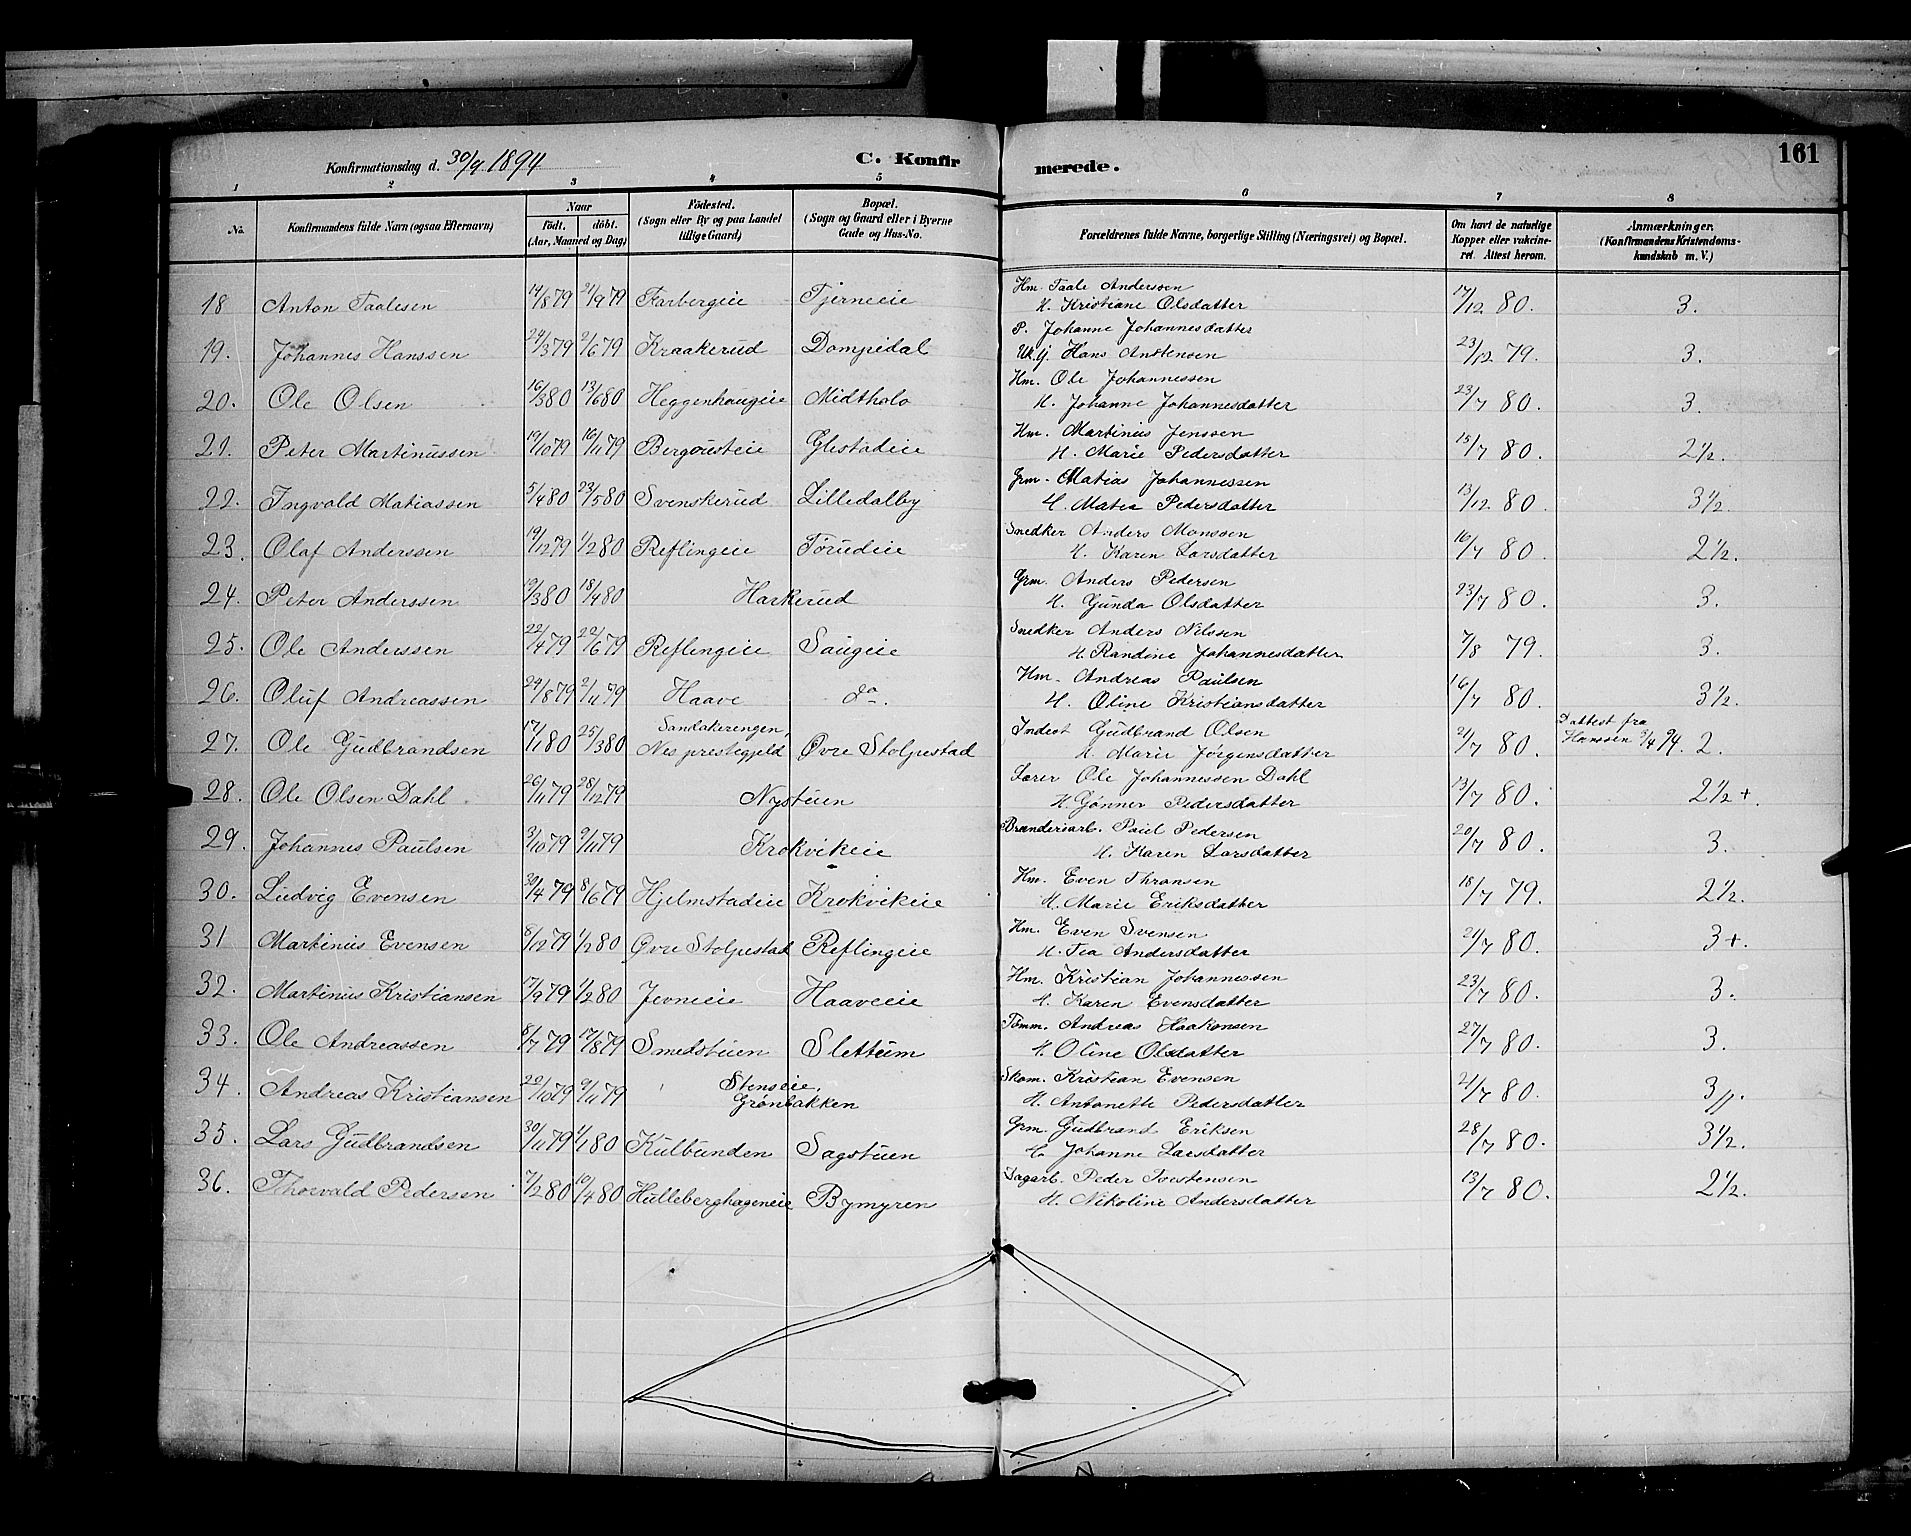 Konfirmationsdag d. 30/9 1894 C. Konfirmerede. 161
1 2 3 4 5 6 7 8
No. Konfirmandens fulde Navn (ogsaa Efternavn) Naar Født. døbt. (Aar, Maaned og Dag) Fødested. (Sogn eller By og paa Landet tillige Gaard) Bopæl. (Sogn og Gaard eller i Byerne Gade og Hus-No. Forældrenes fulde Navne, borgerlige Stilling (Næringsvei) og Bopæl. Om havt de naturlige Kopper eller vakcineret. Attest herom. Anmærkninger. (Konfirmandens Kristendomskundskab m. V.)
18 Anton Taalesen 14/8 79 21/9 79 Farbergeie Tjerneeie Hm. Taale Anderssen
H. Kristiane Olsdatter 17/12 80. 3.
19. Johannes Hanssen 24/3 79 2/6 79 Kraakerud Dompidal P. Johanne Johannesdatter
Uk. g. Hans Anstensen 23/12 79. 3.
20. Ole Olsen 16/3 80 13/6 80 Heggenhaugeie Midtholo Hm. Ole Johannessen
H. Johanne Johannesdatter 23/7 80. 3.
21. Peter Martinussen 19/10 79 16/11 79 Bergousteie Glestadeie Hm. Martinus Jenssen
H. Marie Pedersdatter 15/7 80. 2½.
22. Ingvald Matiassen 5/4 80 23/5 80 Svenskerud Lilledalby Grm. Matias Johannessen
H. Matea Pedersdatter 13/12 80. 3½.
23. Olaf Anderssen 19/12 79 1/2 80 Reflingeie Torudeie Snedker Anders Monssen
H. Karen Larsdatter 16/7 80. 2½.
24. Peter Anderssen 19/3 80 18/4 80 Harkerud Grm. Anders Pedersen
H. Gunda Olsdatter 23/7 80. 3.
25. Ole Anderssen 22/4 79 22/6 79 Reflingeie Saugeie Snedker Anders Nilssen
H. Randine Johannesdatter 7/8 79. 3.
26. Oluf Andreassen 24/8 79 2/11 79 Haave do. Hm. Andreas Paulsen
H. Oline Kristiansdatter 16/7 80. 3½.
27. Ole Gudbrandsen 17/1 80 25/3 80 Sandakerengen, Nes prestegjeld Øvre Stolpestad Inderst Gudbrand Olsen
H. Marie Jørgensdatter 21/7 80. D.attest fra Hanssen 3/4 94. 2.
28. Ole Olsen Dahl. 26/11 79 28/12 79 Nystuen Lærer Ole Johannessen Dahl
H. Gønner Pedersdatter 13/7 80. 2½+.
29. Johannes Paulsen 3/10 79 9/11 79 Krokvikeie Brænderiarb. Paul Pedersen
H. Karen Larsdatter 20/7 80. 3.
30. Ludvig Evensen 30/4 79 8/6 79 Hjelmstadeie Krokvikeie Hm. Even Thronsen
H. Marie Eriksdatter 18/7 79. 2½.
31 Martinus Evensen 8/12 79 1/2 80 Øvre Stolpestad Reflingeie Hm. Even Svensen
H. Tea Andersdatter 21/7 80. 3+.
32. Martinus Kristiansen 17/9 79 1/2 80 Jevneeie Haaveeie Hm. Kristian Johannessen
H. Karen Evensdatter 23/7 80. 3.
33. Ole Andreassen 8/7 79 17/8 79 Smedstuen Slettum Tømm. Andreas Haakonsen
H. Oline Olsdatter 27/7 80. 3.
34. Andreas Kristiansen 20/10 79 9/11 79 Stenseie, Grønbakken Skom. Kristian Evensen
H. Antonette Pedersdatter 21/7 80. 3
35. Lars Gudbrandsen 30/11 79 1/1 80 Kulbunden Sagstuen Grm. Gudbrand Eriksen
H. Johanne Larsdatter 28/7 80. 3½.
36. Thorvald Pedersen 7/2 80 10/4 80 Hulleberghageneie Bymyren Sagarb. Peder Torstensen
H. Nikoline Andersdatter 13/7 80. 2½.